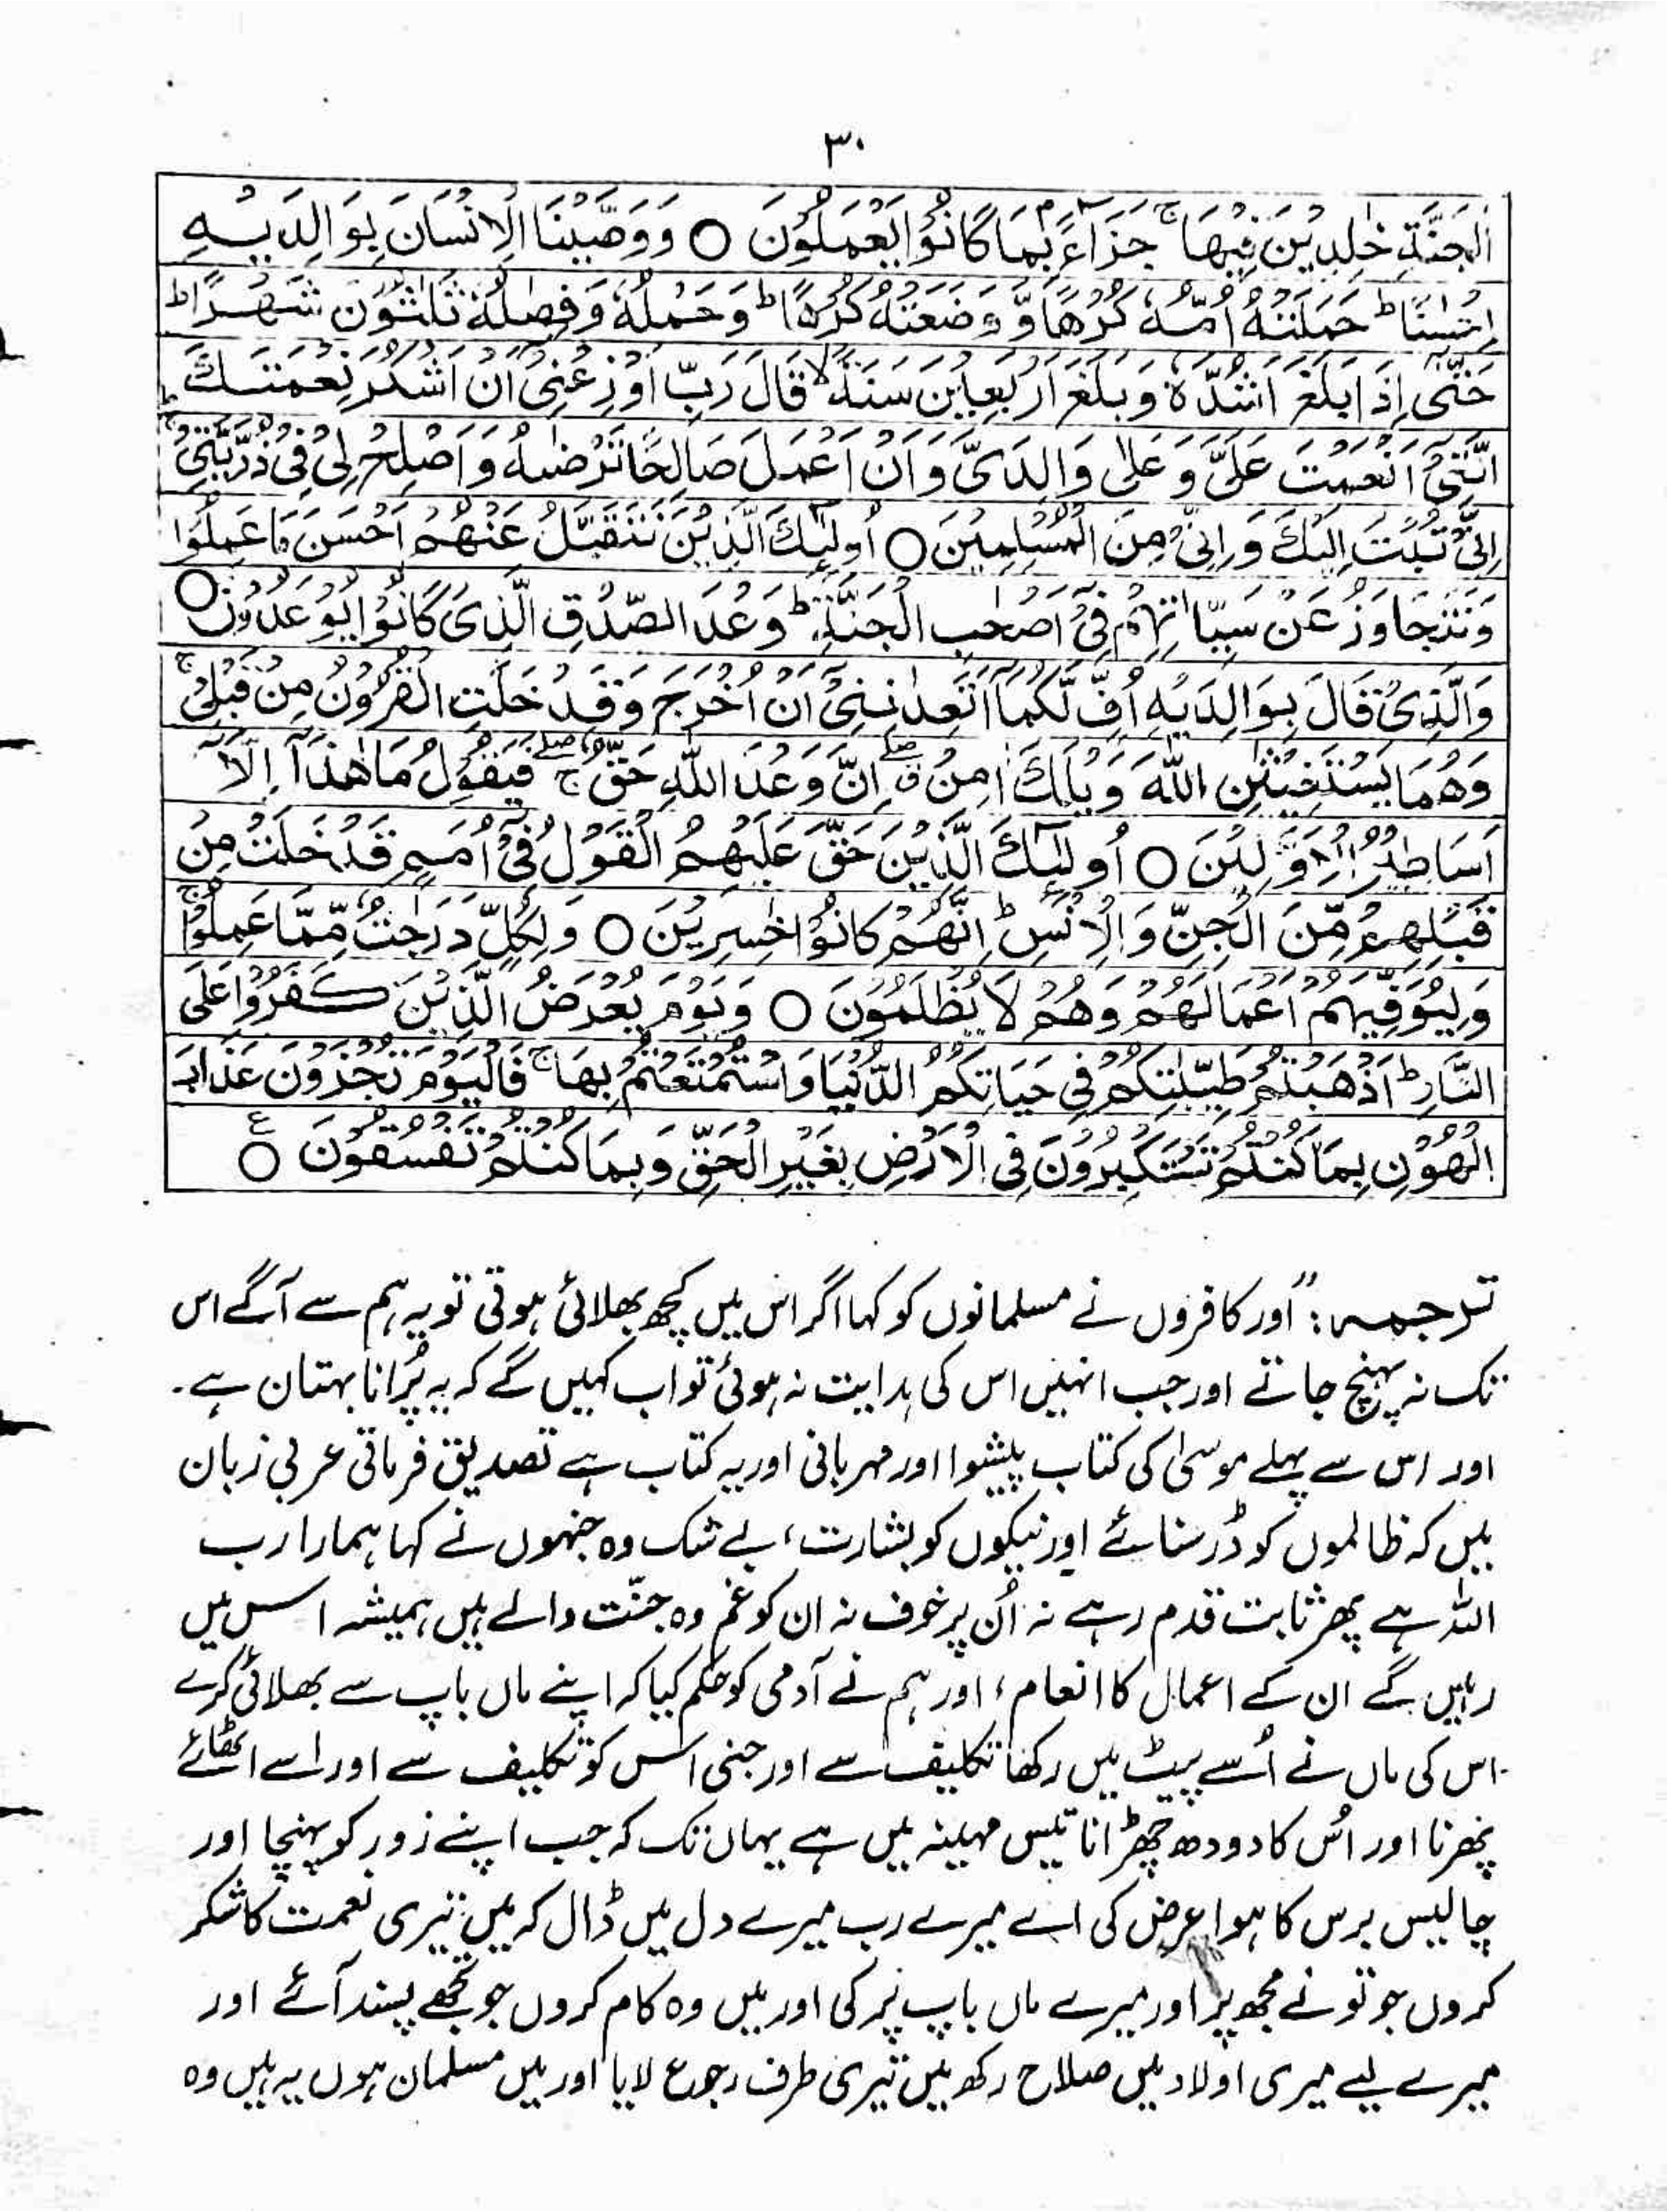 ۳۰
الْجَنَّةِ خٰلِدِیْنَ فِیْهَا ۚ جَزَآءًۢ بِمَا كَانُوْا یَعْمَلُوْنَ ○ وَوَصَّیْنَا الْاِنْسَانَ بِوَالِدَیْهِ
اِحْسٰنًا ؕ حَمَلَتْهُ اُمُّهٗ كُرْهًا وَّ وَضَعَتْهُ كُرْهًا ؕ وَحَمْلُهٗ وَفِصٰلُهٗ ثَلٰثُوْنَ شَهْرًا ؕ
حَتّٰۤی اِذَا بَلَغَ اَشُدَّهٗ وَبَلَغَ اَرْبَعِیْنَ سَنَةً ۙ قَالَ رَبِّ اَوْزِعْنِیْۤ اَنْ اَشْكُرَ نِعْمَتَكَ
الَّتِیْۤ اَنْعَمْتَ عَلَیَّ وَ عَلٰی وَالِدَیَّ وَ اَنْ اَعْمَلَ صَالِحًا تَرْضٰىهُ وَ اَصْلِحْ لِیْ فِیْ ذُرِّیَّتِیْ ۚ
اِنِّیْ تُبْتُ اِلَیْكَ وَ اِنِّیْ مِنَ الْمُسْلِمِیْنَ ○ اُولٰٓئِكَ الَّذِیْنَ نَتَقَبَّلُ عَنْهُمْ اَحْسَنَ مَا عَمِلُوْا
وَنَتَجَاوَزُ عَنْ سَیِّاٰتِهِمْ فِیْۤ اَصْحٰبِ الْجَنَّةِ ؕ وَعْدَ الصِّدْقِ الَّذِیْ كَانُوْا یُوْعَدُوْنَ ○
وَالَّذِیْ قَالَ بِوَالِدَیْهِ اُفٍّ لَّكُمَاۤ اَتَعِدٰنِنِیْۤ اَنْ اُخْرَجَ وَقَدْ خَلَتِ الْقُرُوْنُ مِنْ قَبْلِیْ ۚ
وَهُمَا یَسْتَغِیْثٰنِ اللّٰهَ وَیْلَكَ اٰمِنْ ۖۗ اِنَّ وَعْدَ اللّٰهِ حَقٌّ ۚۖ فَیَقُوْلُ مَا هٰذَاۤ اِلَّاۤ
اَسَاطِیْرُ الْاَوَّلِیْنَ ○ اُولٰٓئِكَ الَّذِیْنَ حَقَّ عَلَیْهِمُ الْقَوْلُ فِیْۤ اُمَمٍ قَدْ خَلَتْ مِنْ
قَبْلِهِمْ مِّنَ الْجِنِّ وَالْاِنْسِ ؕ اِنَّهُمْ كَانُوْا خٰسِرِیْنَ ○ وَلِكُلٍّ دَرَجٰتٌ مِّمَّا عَمِلُوْا ۚ
وَلِیُوَفِّیَهُمْ اَعْمَالَهُمْ وَهُمْ لَا یُظْلَمُوْنَ ○ وَیَوْمَ یُعْرَضُ الَّذِیْنَ كَفَرُوْا عَلَی
النَّارِ ؕ اَذْهَبْتُمْ طَیِّبٰتِكُمْ فِیْ حَیَاتِكُمُ الدُّنْیَا وَاسْتَمْتَعْتُمْ بِهَا ۚ فَالْیَوْمَ تُجْزَوْنَ عَذَابَ
الْهُوْنِ بِمَا كُنْتُمْ تَسْتَكْبِرُوْنَ فِی الْاَرْضِ بِغَیْرِ الْحَقِّ وَبِمَا كُنْتُمْ تَفْسُقُوْنَ ○ ع
ترجمہ: ”اور کافروں نے مسلمانوں کو کہا اگر اس میں کچھ بھلائی ہوتی تو یہ ہم سے آگے اس
تک نہ پہنچ جاتے اور جب انہیں اس کی ہدایت نہ ہوئی تو اب کہیں گے کہ یہ پُرانا بہتان ہے۔
اور اس سے پہلے موسیٰ کی کتاب پیشوا اور مہربانی اور یہ کتاب ہے تصدیق فرماتی عربی زبان
میں کہ ظالموں کو ڈر سنائے اور نیکوں کو بشارت، بے شک وہ جنہوں نے کہا ہمارا رب
اللہ ہے پھر ثابت قدم رہے نہ اُن پر خوف نہ ان کو غم وہ جنّت والے ہیں ہمیشہ اس میں
رہیں گے ان کے اعمال کا انعام، اور ہم نے آدمی کو حکم کیا کہ اپنے ماں باپ سے بھلائی کرے
اس کی ماں نے اُسے پیٹ میں رکھا تکلیف سے اور جنی اس کو تکلیف سے اور اسے اٹھائے
پھرنا اور اُس کا دودھ چھڑانا تیس مہینہ میں ہے یہاں تک کہ جب اپنے زور کو پہنچا اور
چالیس برس کا ہوا عرض کی اے میرے رب میرے دل میں ڈال کہ میں تیری نعمت کا شکر
کروں جو تو نے مجھ پر اور میرے ماں باپ پر کی اور میں وہ کام کروں جو تجھے پسند آئے اور
میرے لیے میری اولاد میں صلاح رکھ میں تیری طرف رجوع لایا اور میں مسلمان ہوں یہ ہیں وہ